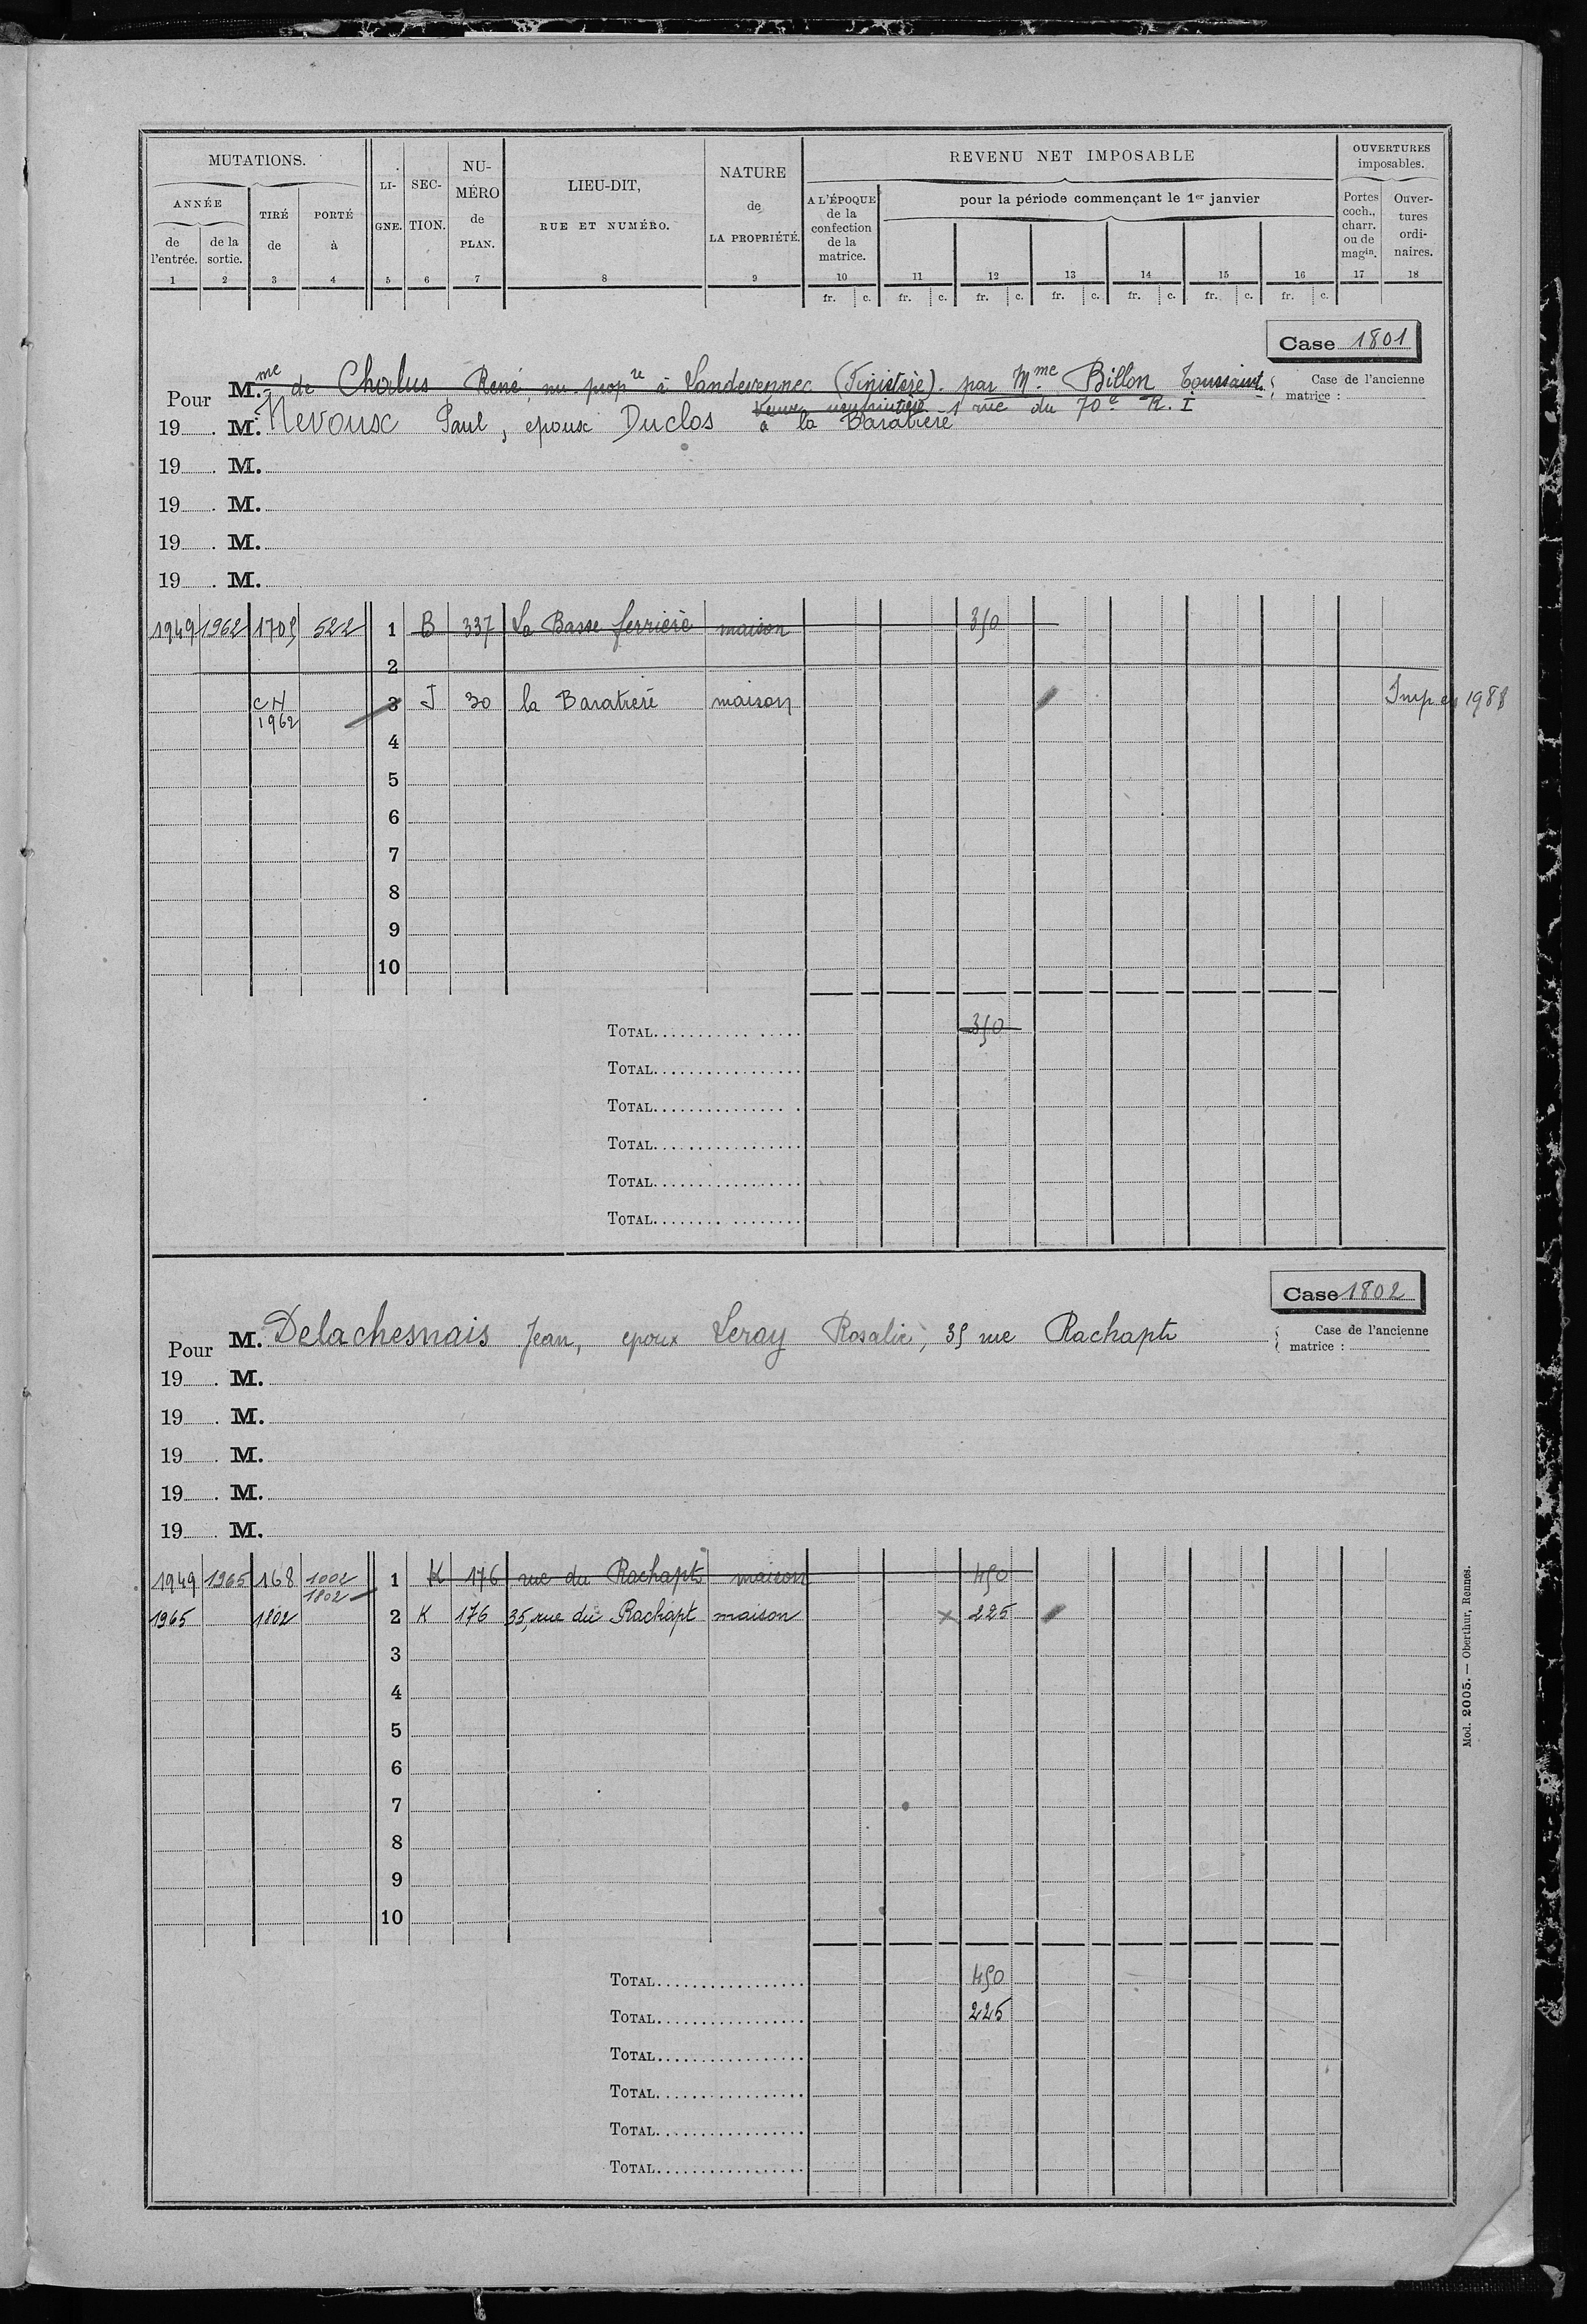 MUTATIONS.
ANNÉE
de l'entrée.
de la sortie.
TIRÉ de
PORTÉ à
LIGNE.
SECTION.
NUMÉRO de PLAN.
LIEU-DIT,
RUE ET NUMÉRO.
NATURE
de
LA PROPRIÉTÉ.
REVENU NET IMPOSABLE
A L'ÉPOQUE
de la
confection
de la
matrice.
pour la période commençant le 1er janvier
OUVERTURES
imposables.
Portes
coch.,
charr.
ou de
magin.
Ouver-
tures
ordi-
naires.
1 2 3 4 5 6 7 8 9 10 11 12 13 14 15 16 17 18
fr. c. fr. c. fr. c. fr. c. fr. c. fr. c. fr. c.
Case 1801
Pour M.me de Chalus René, nu-propre à Landevennec (Finistère) par Mme Billon Toussaint
Case de l'ancienne
matrice :
Veuve usufruitière 1 rue du 70e R. I
19 . M. Nevoux Paul, epoux Duclos à la Baratrere
19 . M.
19 . M.
19 . M.
19 . M.
1949 1962 1705 522 1 B 337 La Basse ferrière maison 350
2
CH 1962 3 J 30 la Baratrere maison Imp en 1988
4
5
6
7
8
9
10
TOTAL 350
TOTAL
TOTAL
TOTAL
TOTAL
TOTAL
Case 1802
Pour M. Delachesnais Jean, epoux Leray Rosalie, 35 rue Rachapt
Case de l'ancienne
matrice :
19 . M.
19 . M.
19 . M.
19 . M.
19 . M.
1949 1965 168 1002 1802 1 K 176 rue du Rachapt maison 450
1965 1802 2 K 176 35, rue du Rachapt maison x 225
3
4
5
6
7
8
9
10
TOTAL 450
TOTAL 225
TOTAL
TOTAL
TOTAL
TOTAL
Mod. 2005. — Oberthur, Rennes.